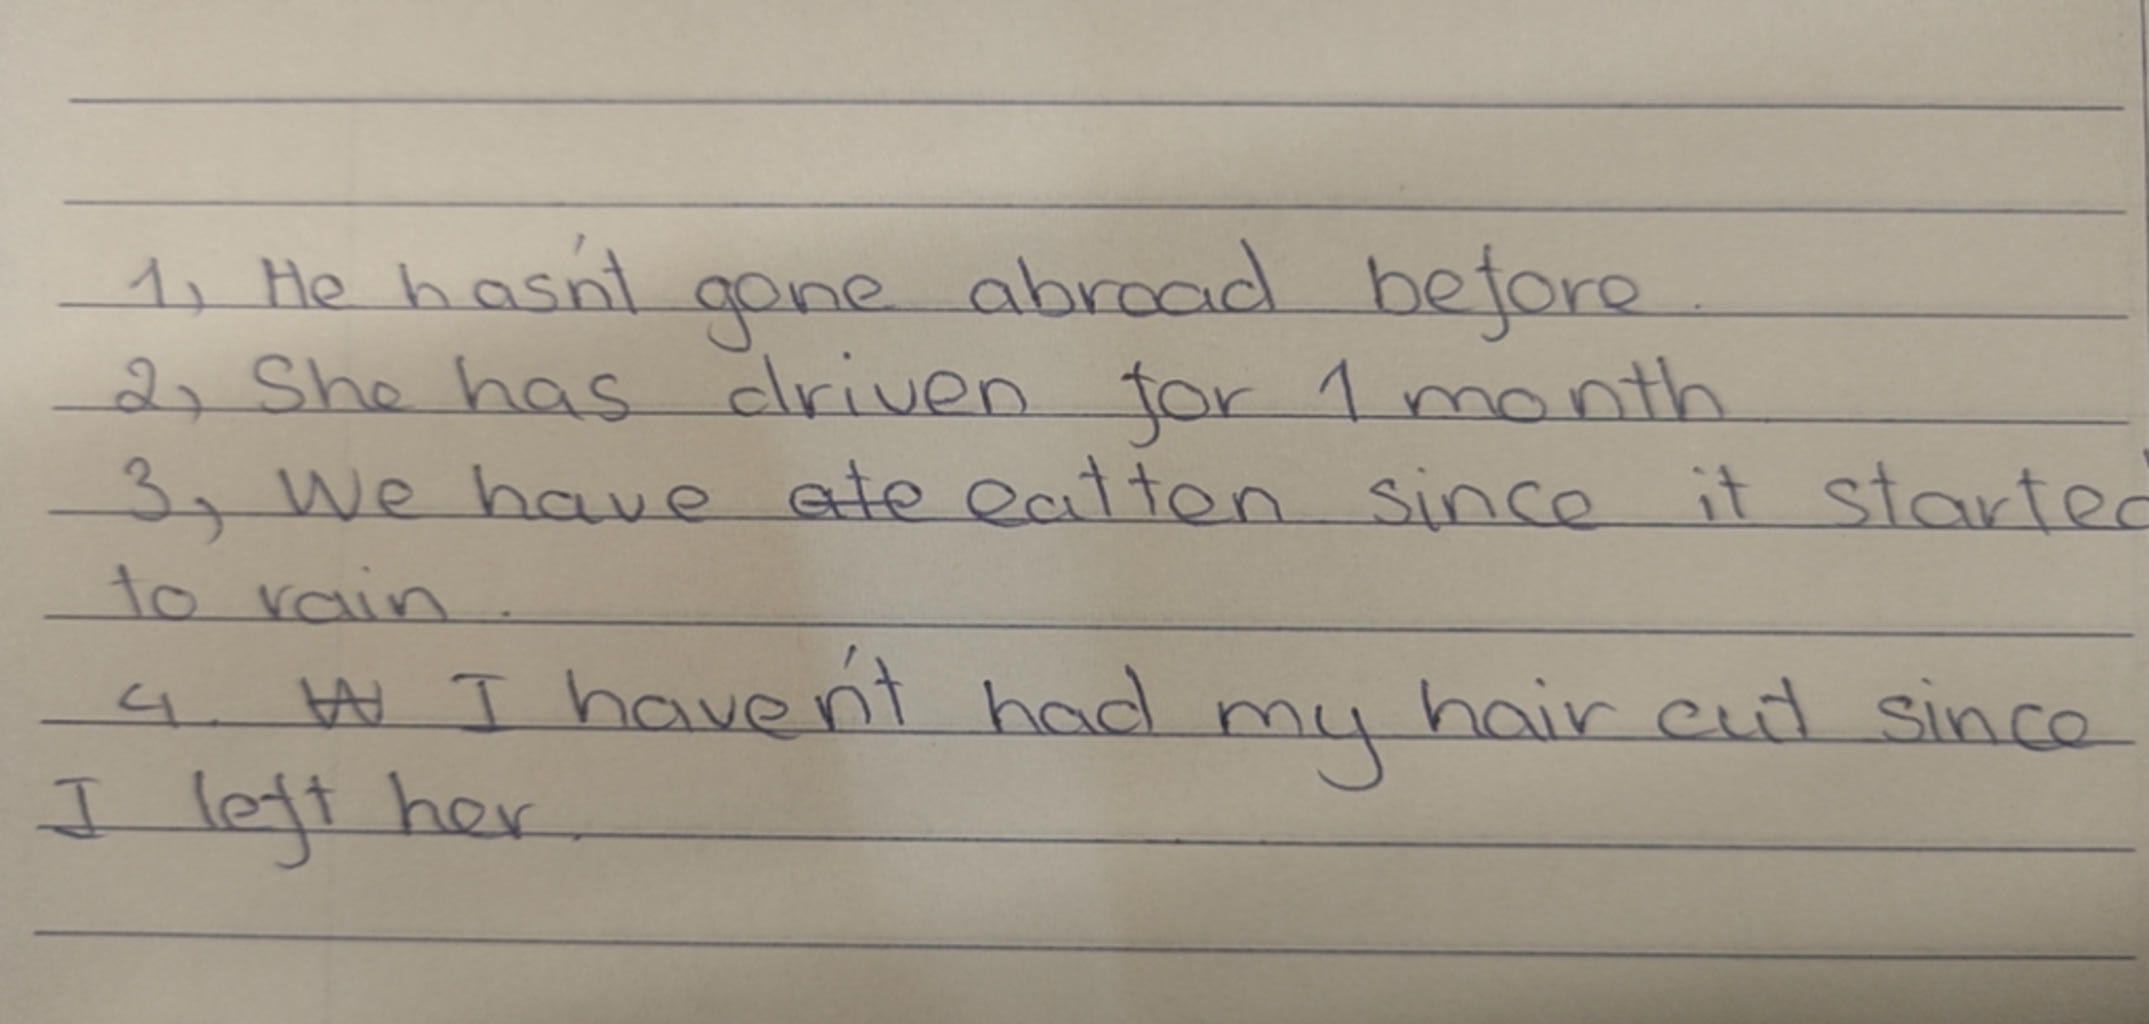 1, He hasn't gone abroad before.
2, She has driven for 1 month
3, We have ate eatten since it started
to rain.
4. W I haven't had my hair cut since
I left her.